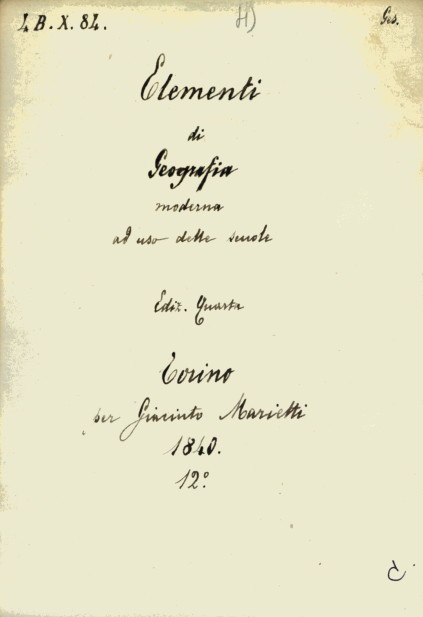 I. B. X. 84.
Ges.
Elementi
di
Geografia
moderna
ad uso delle scuole
Ediz. Quarta
Torino
per Giacinto Marietti
1840.
12º